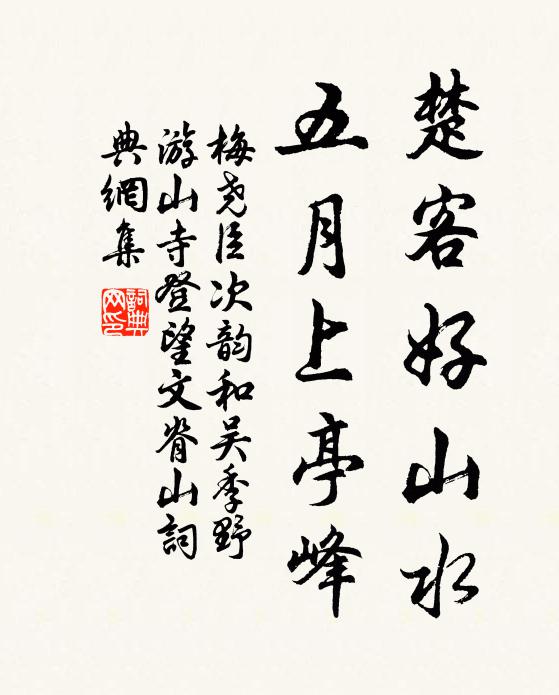 楚客好山水
五月上亭峰
梅尧臣次韵和吴季野
游山寺登望文脊山詞
典網集
詞典網印